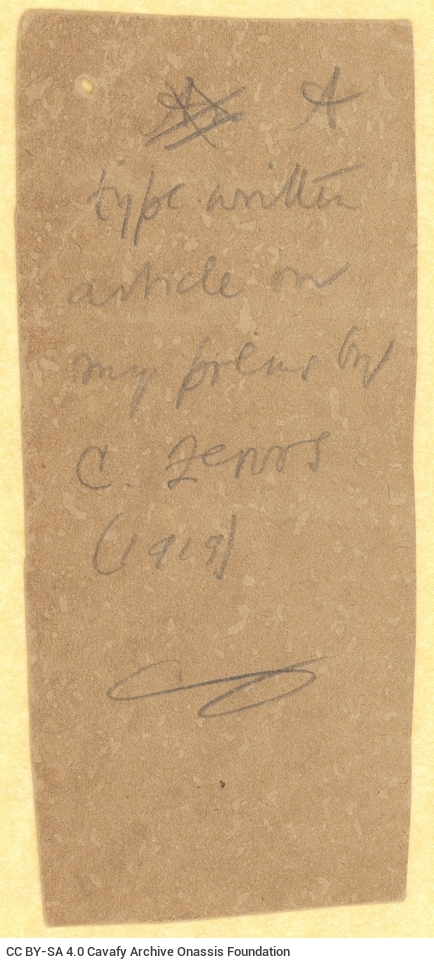 A
type written
article on
my poems by
C. Zervos
(1919)
CC BY-SA 4.0 Cavafy Archive Onassis Foundation